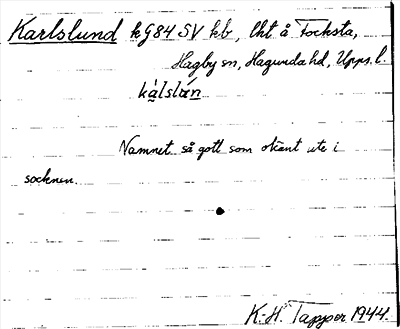 Karlslund kG84 SV kb, lht å Focksta,
Hagby sn, Hagunda hd, Upps. l.
kàlslún
Namnet så gott som okänt ute i
socknen.
K-H. Tapper 1944.